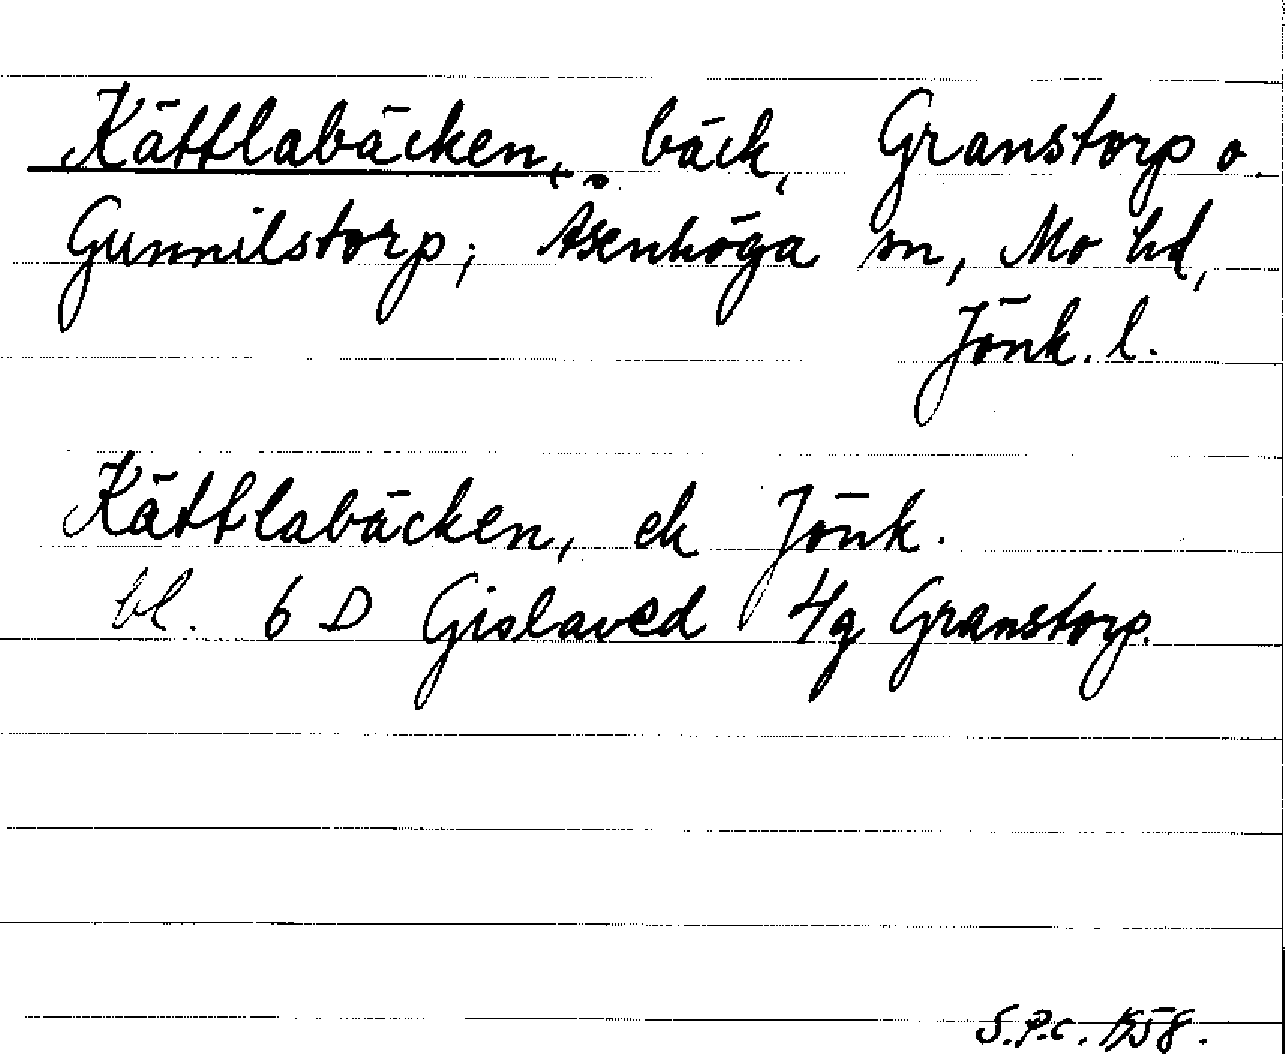 Kättlabäcken, bäck, Granstorp o.
Gunnilstorp; Åsenhöga sn, Mo hd,
Jönk. l.
Kättlabäcken, ek Jönk.
bl. 6 D Gislaved 4g Granstorp.
S.P.C. 1958.